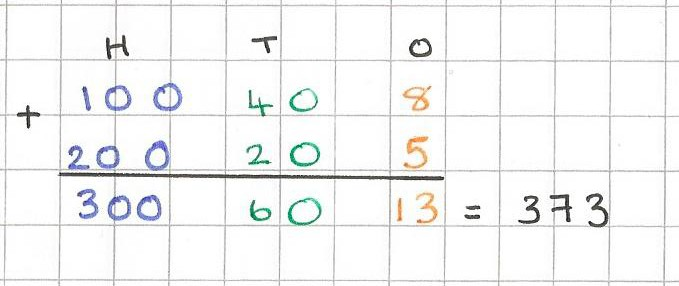 H T O
+ 100 40 8
200 20 5
300 60 13 = 373